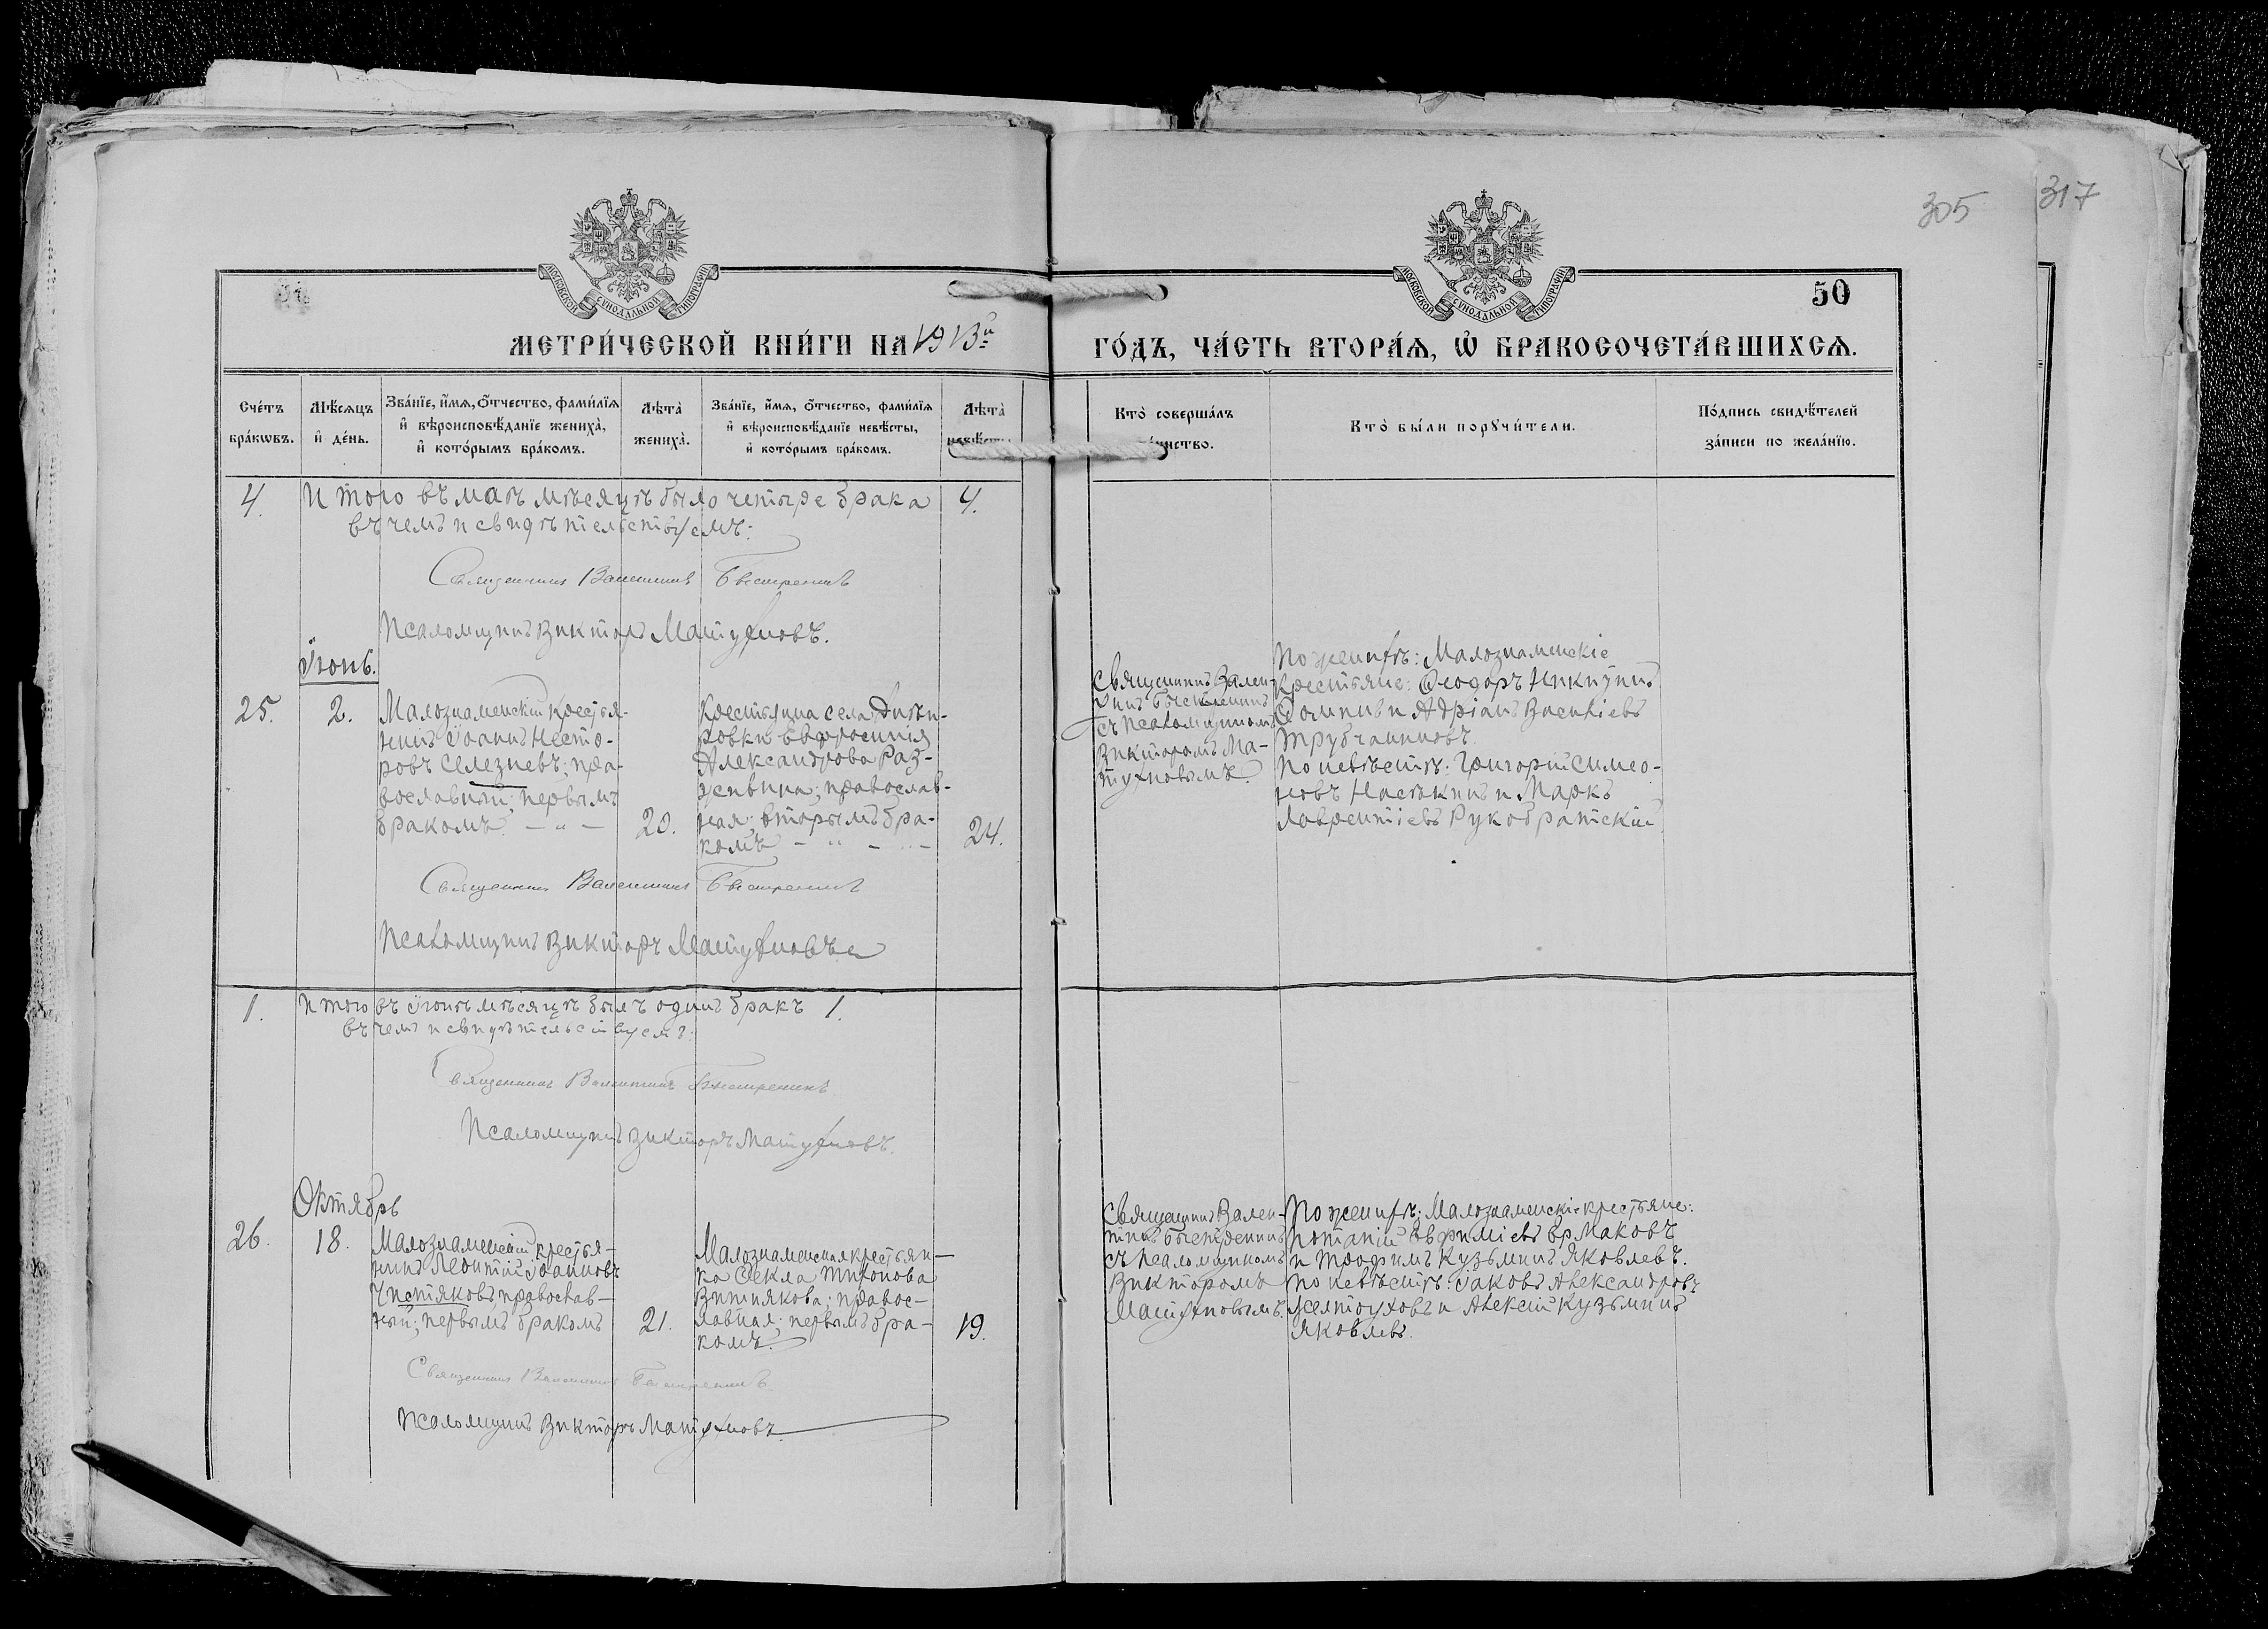 305
317
МОСКОВСКОЙ СѴНОДАЛЬНОЙ ТИПОГРАФІИ
МОСКОВСКОЙ СѴНОДАЛЬНОЙ ТИПОГРАФІИ
50
МЕТРИ́ЧЕСКОЙ КНИ́ГИ НА 1913й
ГО́ДЪ, ЧА́СТЬ ВТОРА́Ѧ, Ѡ҆ БРАКОСОЧЕТА́ВШИХСѦ.
Сче́тъ
бра́кѡвъ.
Мѣ́сѧцъ
и҆ де́нь.
Зва́нїе, и҆́мѧ, ѻ҆́тчество, фами́лїѧ
и҆ вѣроисповѣ́данїе жениха̀,
и҆ кото́рымъ бра́комъ.
Лѣта̀
жениха̀.
Зва́нїе, и҆́мѧ, ѻ҆́тчество, фами́лїѧ
и҆ вѣроисповѣ́данїе невѣ́сты,
и҆ кото́рымъ бра́комъ.
Лѣта̀
невѣ́сты.
Кто̀ соверша́лъ
та́инство.
Кто̀ бы́ли порꙋчи́тели.
По́дпись свидѣ́телей
за́писи по жела́нїю.
4.
Итого въ маѣ мѣсяцѣ было четыре брака
4.
въ чемъ и свидѣтельствуемъ:
Священникъ Валентинъ
Псаломщикъ Викторъ Матухновъ.
Іюнь.
25.
2.
Малознаменскій крестья-
нинъ Іоаннъ Несто-
ровъ Селезневъ; пра-
вославный; первымъ
бракомъ. — „ —
20.
Крестьянка села
Евфросинія
Александрова Раз-
православ-
ная; вторымъ бра-
комъ — „ — „ —
24.
Священникъ Вален-
тинъ
съ псаломщикомъ
Викторомъ Ма-
тухновымъ.
По женихѣ: Малознаменскіе
крестьяне: Ѳеодоръ Никитинъ
и Адріанъ
Трубчаниновъ.
По невѣстѣ: Григорій Симео-
новъ и Маркъ
Лаврентіевъ Рукобратскій
Священникъ Валентинъ
Псаломщикъ Викторъ Матухновъ
1.
Итого въ Іюнѣ мѣсяцѣ былъ одинъ бракъ 1.
въ чемъ и свидѣтельствуемъ:
Священникъ Валентинъ
Псаломщикъ Викторъ Матухновъ.
Октябрь
26.
18.
Малознаменскій крестья-
нинъ Леонтій Іоанновъ
Чистяковъ; православ-
ный; первымъ бракомъ
21.
Малознаменская крестьян-
ка Ѳекла Тихонова
Витнякова; правос-
лавная; первымъ бра-
комъ.
19.
Священникъ Вален-
тинъ
съ псаломщикомъ
Викторомъ
Матухновымъ.
По женихѣ: Малознаменскіе крестьяне:
Потапій Евфиміевъ Ермаковъ
и Трофимъ Кузьминъ Яковлевъ.
По невѣстѣ: Іаковъ Александровъ
Желтоуховъ и Алексій Кузьминъ
Яковлевъ.
Священникъ Валентинъ
Псаломщикъ Викторъ Матухновъ